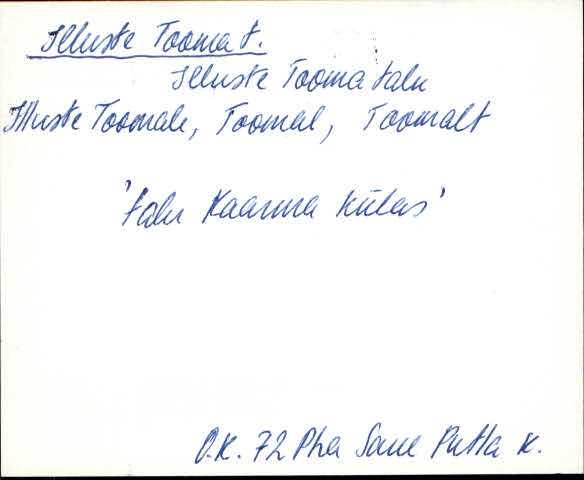 Illuste Tooma t.
Illuste Tooma talu
Illuste Toomale, Toomal, Toomalt
'talu Kaarma külas'
O.K. 72 Pha Saue Putla k.